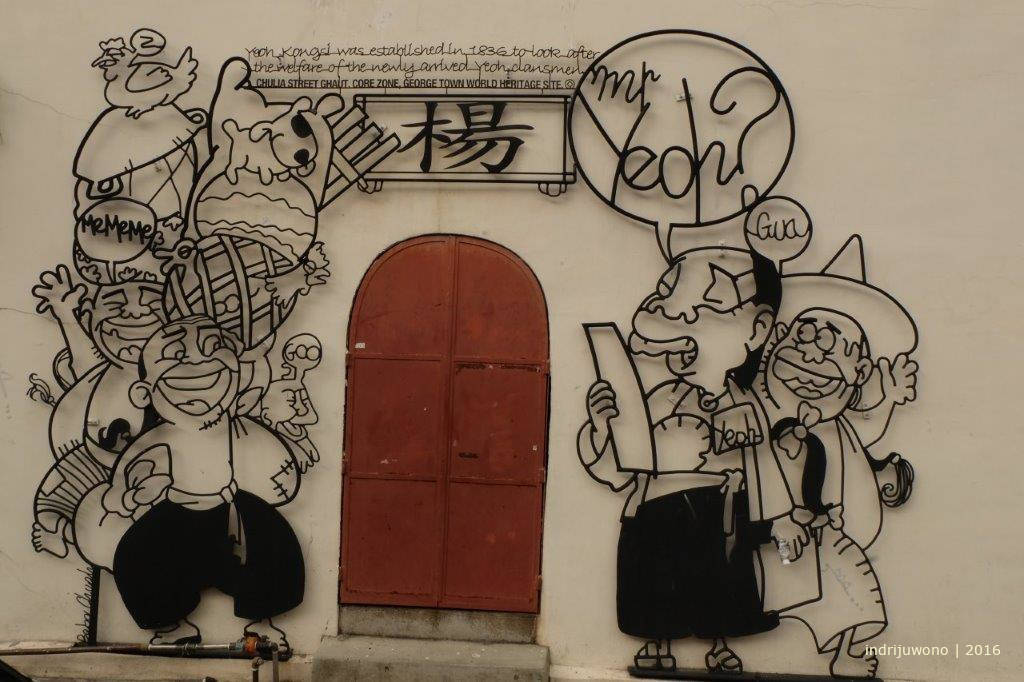 2
Yeoh Kongsi was established in 1836 to look after
the welfare of the newly arrived Yeoh clansmen
CHULIA STREET GHAUT, CORE ZONE, GEORGE TOWN WORLD HERITAGE SITE.
楊
Mr
Yeoh?
Gua
Me Me Me
Goo
Yeoh
indrijuwono | 2016